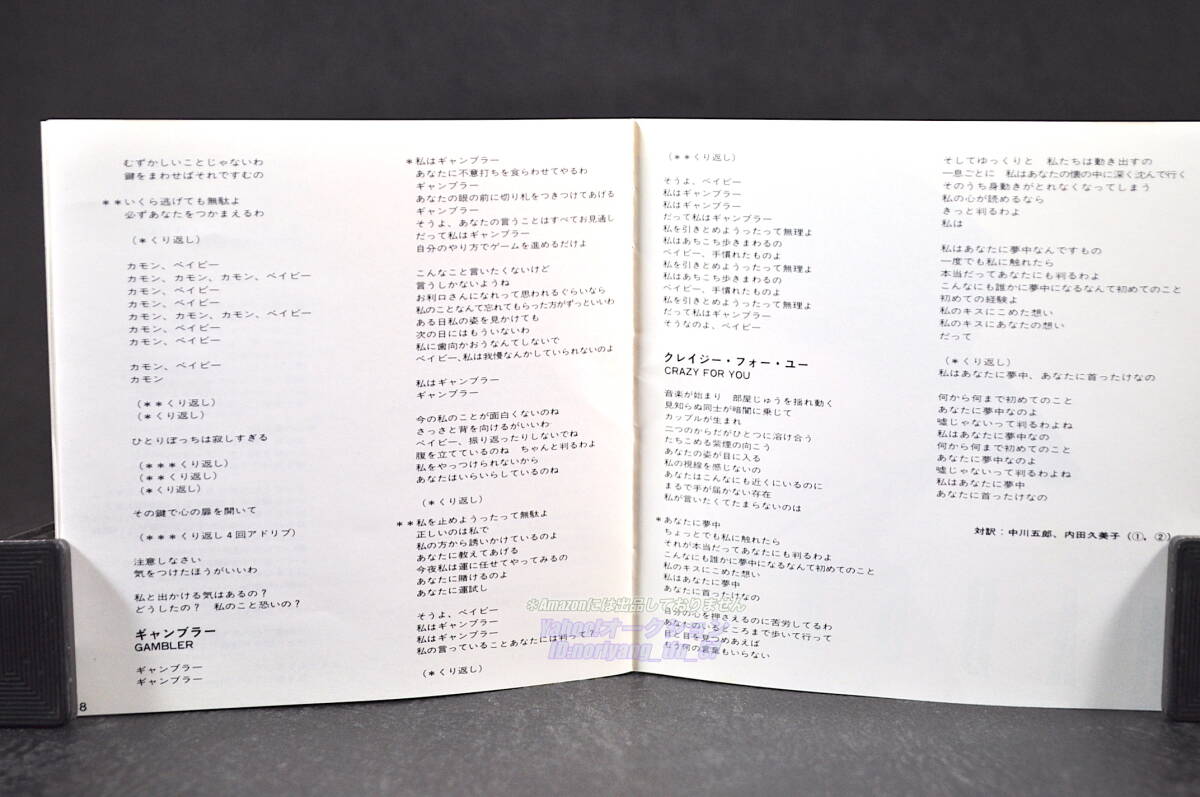 むずかしいことじゃないわ
鍵をまわせばそれですむの
**いくら逃げても無駄よ
必ずあなたをつかまえるわ
(*くり返し)
カモン、ベイビー
カモン、カモン、カモン、ベイビー
カモン、ベイビー
カモン、ベイビー
カモン、カモン、カモン、ベイビー
カモン、ベイビー
カモン、ベイビー
カモン、ベイビー
カモン
(**くり返し)
(*くり返し)
ひとりぼっちは寂しすぎる
(***くり返し)
(**くり返し)
(*くり返し)
その鍵で心の扉を開いて
(***くり返し4回アドリブ)
注意しなさい
気をつけたほうがいいわ
私と出かける気はあるの?
どうしたの? 私のこと恐いの?
ギャンブラー
GAMBLER
ギャンブラー
ギャンブラー
8
*私はギャンブラー
あなたに不意打ちを食らわせてやるわ
ギャンブラー
あなたの眼の前に切り札をつきつけてあげる
ギャンブラー
そうよ、あなたの言うことはすべてお見通し
だって私はギャンブラー
自分のやり方でゲームを進めるだけよ
こんなこと言いたくないけど
言うしかないようね
お利口さんになれって思われるぐらいなら
私のことなんて忘れてもらった方がずっといいわ
ある日私の姿を見かけても
次の日にはもういないわ
私に歯向かおうなんてしないで
ベイビー、私は我慢なんかしていられないのよ
私はギャンブラー
ギャンブラー
今の私のことが面白くないのね
さっさと背を向けるがいいわ
ベイビー、振り返ったりしないでね
腹を立てているのね ちゃんと判るわよ
私をやっつけられないから
あなたはいらいらしているのね
(*くり返し)
**私を止めようったって無駄よ
正しいのは私で
私の方から誘いかけているのよ
あなたに教えてあげる
今夜私は運に任せてやってみるの
あなたに賭けるのよ
あなたに運試し
そうよ、ベイビー
私はギャンブラー
私はギャンブラー
私の言っていることあなたには判って?
(*くり返し)
(**くり返し)
そうよ、ベイビー
私はギャンブラー
私はギャンブラー
だって私はギャンブラー
私を引きとめようったって無理よ
私はあちこち歩きまわるの
ベイビー、手慣れたものよ
私を引きとめようったって無理よ
私はあちこち歩きまわるの
ベイビー、手慣れたものよ
私を引きとめようったって無理よ
だって私はギャンブラー
そうなのよ、ベイビー
クレイジー・フォー・ユー
CRAZY FOR YOU
音楽が始まり 部屋じゅうを揺れ動く
見知らぬ同士が暗闇に乗じて
カップルが生まれ
二つのからだがひとつに溶け合う
たちこめる紫煙の向こう
あなたの姿が目に入る
私の視線を感じないの
あなたはこんなにも近くにいるのに
まるで手が届かない存在
私が言いたくてたまらないのは
*あなたに夢中
ちょっとでも私に触れたら
それが本当だってあなたにも判るわよ
こんなにも誰かに夢中になるなんて初めてのこと
私のキスにこめた想い
私はあなたに夢中
あなたに首ったけなの
自分の心を押さえるのに苦労してるわ
あなたのいるところまで歩いて行って
目と目を見つめあえば
もう何の言葉もいらない
そしてゆっくりと 私たちは動き出すの
一息ごとに 私はあなたの懐の中に深く沈んで行く
そのうち身動きがとれなくなってしまう
私の心が読めるなら
きっと判るわよ
私は
私はあなたに夢中なんですもの
一度でも私に触れたら
本当だってあなたにも判るわよ
こんなにも誰かに夢中になるなんて初めてのこと
初めての経験よ
私のキスにこめた想い
私のキスにあなたの想い
だって
(*くり返し)
私はあなたに夢中、あなたに首ったけなの
何から何まで初めてのこと
あなたに夢中なのよ
嘘じゃないって判るわよね
私はあなたに夢中なの
何から何まで初めてのこと
あなたに夢中なのよ
嘘じゃないって判るわよね
私はあなたに夢中
あなたに首ったけなの
対訳:中川五郎、内田久美子(①,②)
※Amazonには出品しておりません
Yahoo!オークション